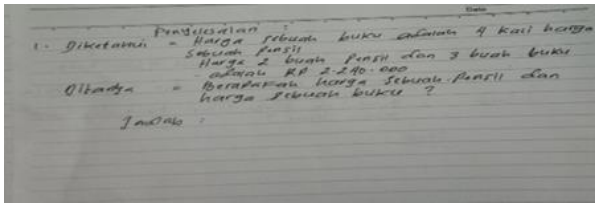 Date
Penyelesaian :
1. Diketahui = Harga sebuah buku adalah 4 kali harga
Sebuah Pensil
Harga 2 buah Pensil dan 3 buah buku
adalah RP 2.240.000
Ditanya = Berapakah harga Sebuah Pensil dan
harga sebuah buku ?
Jawab :